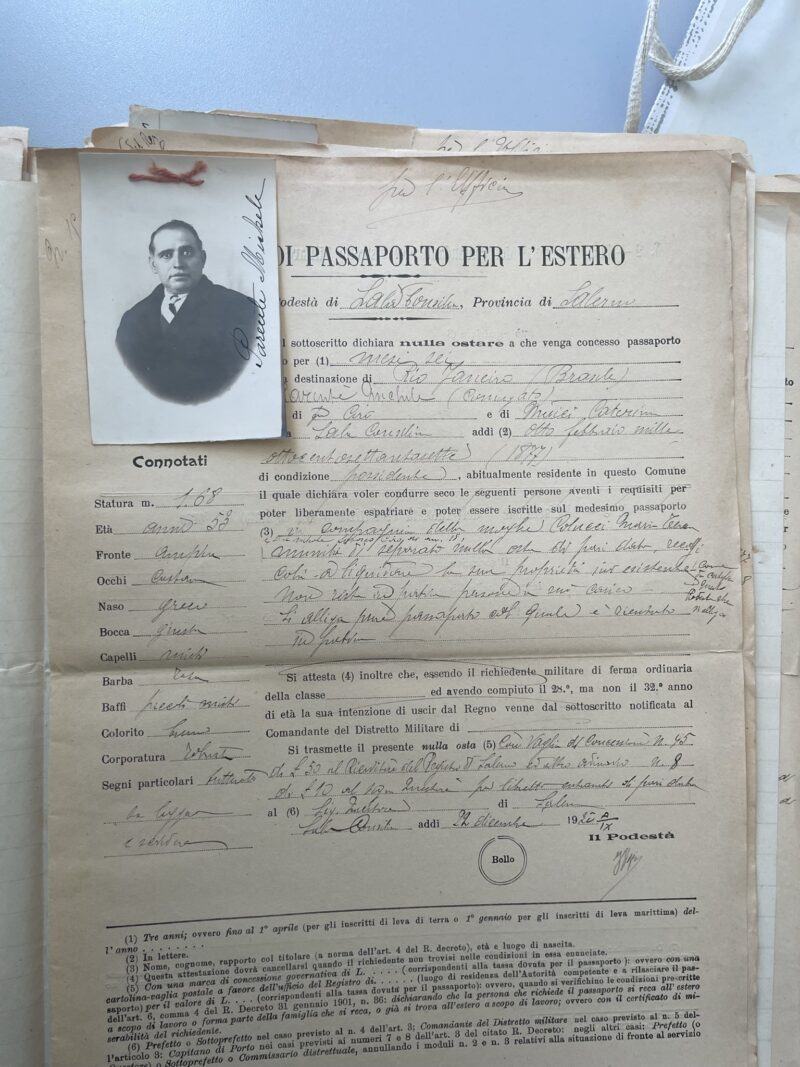 per l'Ufficio
DI PASSAPORTO PER L'ESTERO
Parente Michele
Podestà di Sala Consilina, Provincia di Salerno
l sottoscritto dichiara nulla ostare a che venga concesso passaporto
o per (1) mesi sei
a destinazione di Rio Janeiro (Brasile)
Parente Michele (coniugato)
di Ciro e di Caterina
a Sala Consilina addì (2) otto febbraio mille
ottocentosettantasette (1877)
di condizione possidente, abitualmente residente in questo Comune
il quale dichiara voler condurre seco le seguenti persone aventi i requisiti per
poter liberamente espatriare e poter essere iscritte sul medesimo passaporto
(3) in compagnia della moglie Colucci Maria
munita di separato nulla osta di pari data, recasi
colà a liquidare la sua proprietà ivi esistente
Non
Si allega pure passaporto col quale è rientrato
in patria
Connotati
Statura m. 1.68
Età anni 53
Fronte ampia
Occhi castani
Naso greco
Bocca giusta
Capelli misti
Barba rasa
Baffi misti
Colorito bruno
Corporatura robusta
Segni particolari
Si attesta (4) inoltre che, essendo il richiedente militare di ferma ordinaria
della classe ed avendo compiuto il 28.º, ma non il 32.º anno
di età la sua intenzione di uscir dal Regno venne dal sottoscritto notificata al
Comandante del Distretto Militare di
Si trasmette il presente nulla osta (5) Con Vaglia di Concessione N. 45
di £ 50 al Ricevitore del Registro di Salerno ed altro ordinario N. 8
di £ 10 al per libretto entrambi di pari data
al (6) Sig. Questore di Salerno
Sala Consilina addì 22 dicembre 19
IX
Il Podestà
Bollo
(1) Tre anni; ovvero fino al 1º aprile (per gli inscritti di leva di terra o 1º gennaio per gli inscritti di leva marittima) del-
l'anno . . . . . . . .
(2) In lettere.
(3) Nome, cognome, rapporto col titolare (a norma dell'art. 4 del R. decreto), età e luogo di nascita.
(4) Questa attestazione dovrà cancellarsi quando il richiedente non trovisi nelle condizioni in essa enunciate.
(5) Con una marca di concessione governativa di L. . . . . (corrispondenti alla tassa dovuta per il passaporto): ovvero con una
cartolina-vaglia postale a favore dell'ufficio del Registro di. . . . . . (luogo di residenza dell'Autorità competente e a rilasciare il pas-
saporto) per il valore di L. . . . (corrispondenti alla tassa dovuta per il passaporto): ovvero, quando si verifichino le condizioni prescritte
dell'art. 6, comma 4 del R. Decreto 31 gennaio 1901, n. 36: dichiarando che la persona che richiede il passaporto si reca all'estero
a scopo di lavoro o forma parte della famiglia che si reca, o già si trova all'estero a scopo di lavoro; ovvero con il certificato di mi-
serabilità del richiedente.
(6) Prefetto o Sottoprefetto nel caso previsto al n. 4 dell'art. 3; Comandante del Distretto militare nel caso previsto al n. 5 del-
l'articolo 3: Capitano di Porto nei casi previsti ai numeri 7 e 8 dell'art. 3 del citato R. Decreto: negli altri casi: Prefetto (o
Questore) o Sottoprefetto o Commissario distrettuale, annullando i moduli n. 2 e n. 3 relativi alla situazione di fronte al servizio